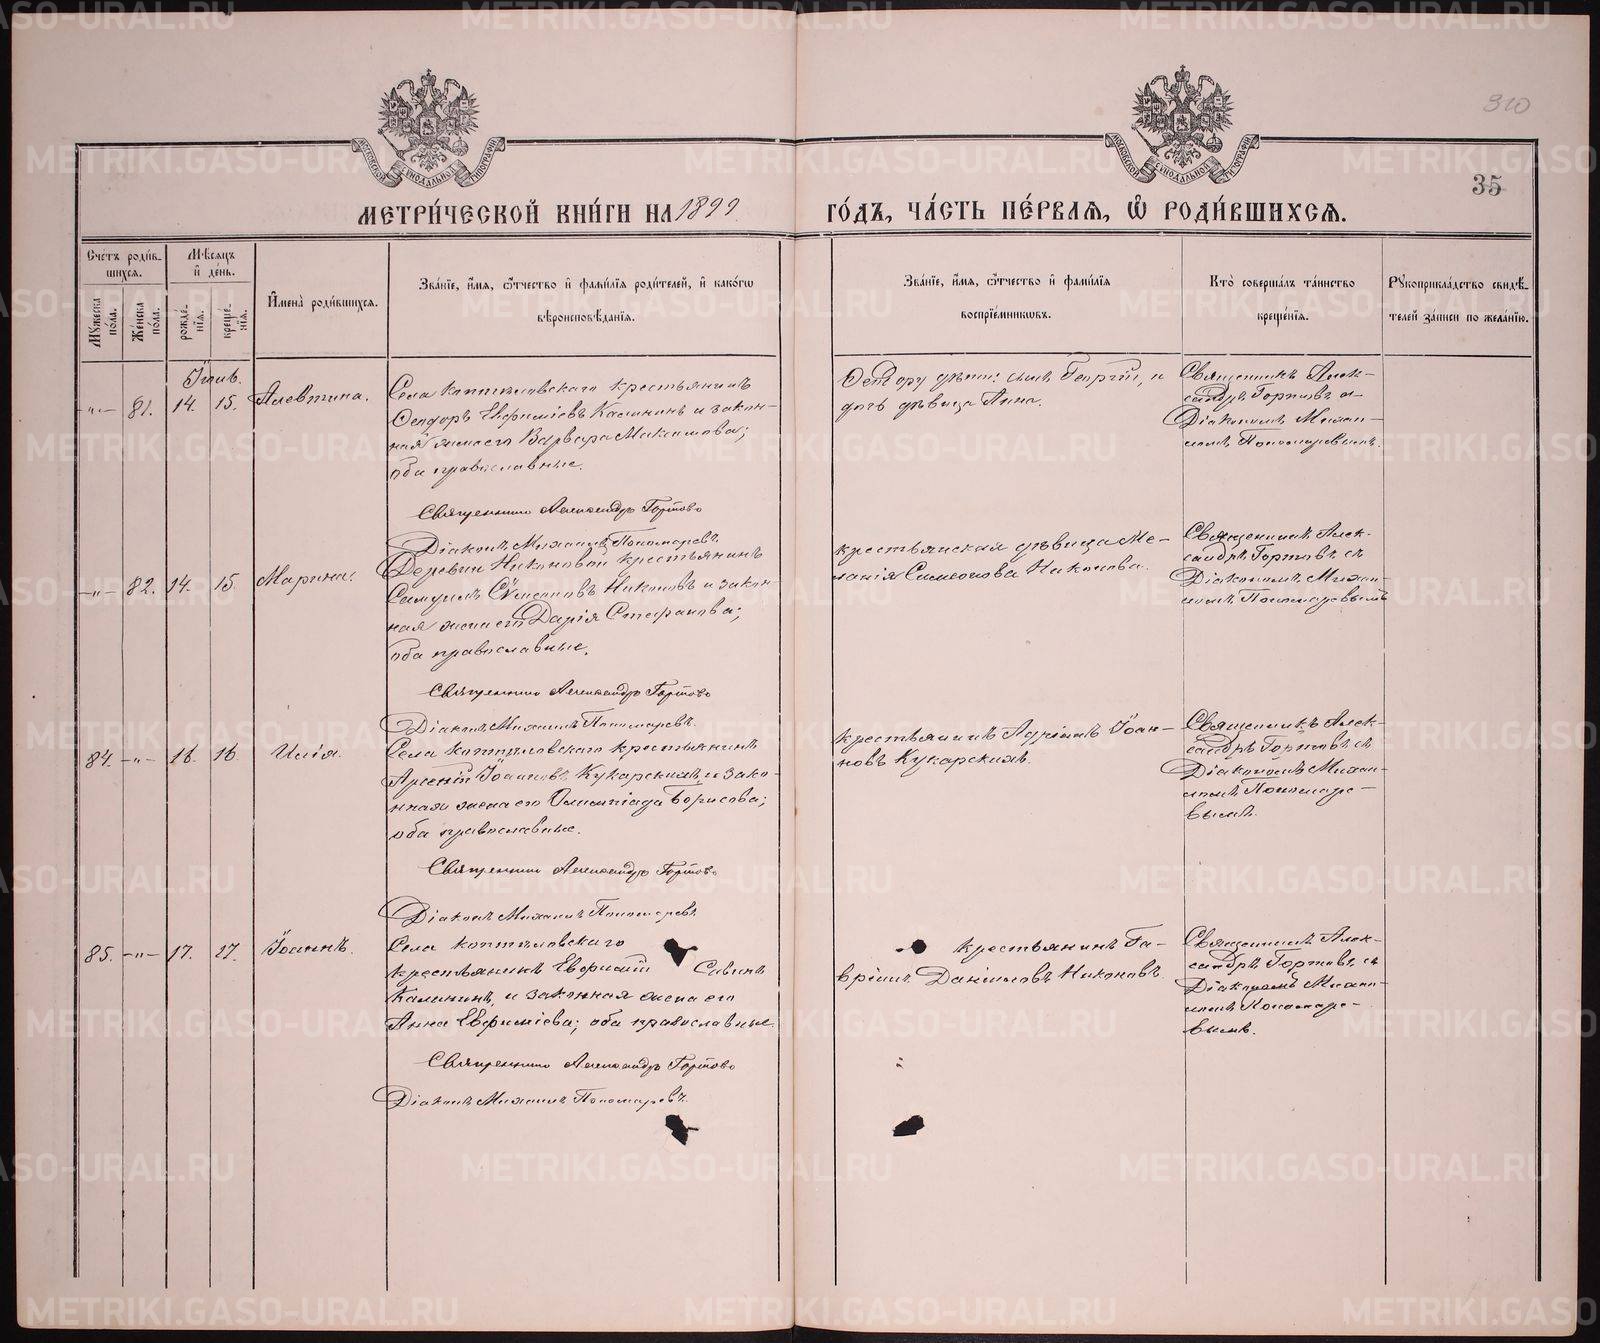 310
35
МЕТРИ́ЧЕСКОЙ КНИ́ГИ НА 1899 ГО́ДЪ, ЧА́СТЬ ПЕ́РВАѦ, Ѡ҆ РОДИ́ВШИХСѦ.
Сче́тъ роди́в-
шихсѧ.
Мꙋ́жеска по́ла.
Же́нска по́ла.
Мѣ́сѧцъ
и҆ де́нь.
рожде́-
нїѧ.
креще́-
нїѧ.
И҆мена̀ роди́вшихсѧ.
Зва́нїе, и҆́мѧ, ѻ҆́тчество и҆ фами́лїѧ роди́телей, и҆ како́гѡ
вѣроисповѣ́данїѧ.
Зва́нїе, и҆́мѧ, ѻ҆́тчество и҆ фами́лїѧ
воспрїе́мникѡвъ.
Кто̀ соверша́лъ та́инство
креще́нїѧ.
Рꙋкоприкла́дство свидѣ́-
телей за́писи по жела́нїю.
Іюнь.
-"- 81. 14. 15. Алевтина.
Села Коптеловскаго крестьянинъ
Ѳеодоръ Евфиміевъ Калининъ и закон-
ная жена его Варвара Максимова;
оба православные.
Священникъ Александръ Гортовъ
Діаконъ Михаилъ Пономаревъ.
дочь дѣвица Анна.
Священникъ Алек-
сандръ Гортовъ с
Діакономъ Михаи-
ломъ Пономаревымъ.
-"- 82. 14. 15. Марина.
Деревни Никоновой крестьянинъ
Самуилъ Сѵмеоновъ Никоновъ и закон-
ная жена его Дарія Стефанова;
оба православные.
Священникъ Александръ Гортовъ
Діаконъ Михаилъ Пономаревъ.
Крестьянская дѣвица Ме-
ланія Симеонова Никонова.
Священникъ Алек-
сандръ Гортовъ съ
Діакономъ Михаи-
ломъ Пономаревымъ
84. -"- 16. 16. Илія.
Села Коптеловскаго крестьянинъ
Арсеній Іоанновъ Кукарскихъ и зако-
нная жена его Олимпіада Борисова;
оба православные.
Священникъ Александръ Гортовъ
Діаконъ Михаилъ Пономаревъ.
Крестьянинъ Адріанъ Іоан-
новъ Кукарскихъ.
Священникъ Алек-
сандръ Гортовъ съ
Діакономъ Михаи-
ломъ Пономаре-
вымъ.
85. -"- 17. 17. Іоаннъ.
Села Коптеловскаго
крестьянинъ Евфимій Савинъ
Калининъ, и законная жена его
Анна Евфиміева; оба православные.
Священникъ Александръ Гортовъ
Діаконъ Михаилъ Пономаревъ.
Крестьянинъ Га-
вріилъ Даніиловъ Никоновъ.
Священникъ Алек-
сандръ Гортовъ, съ
Діакономъ Михаи-
ломъ Пономаре-
вымъ.
METRIKI.GASO-URAL.RU